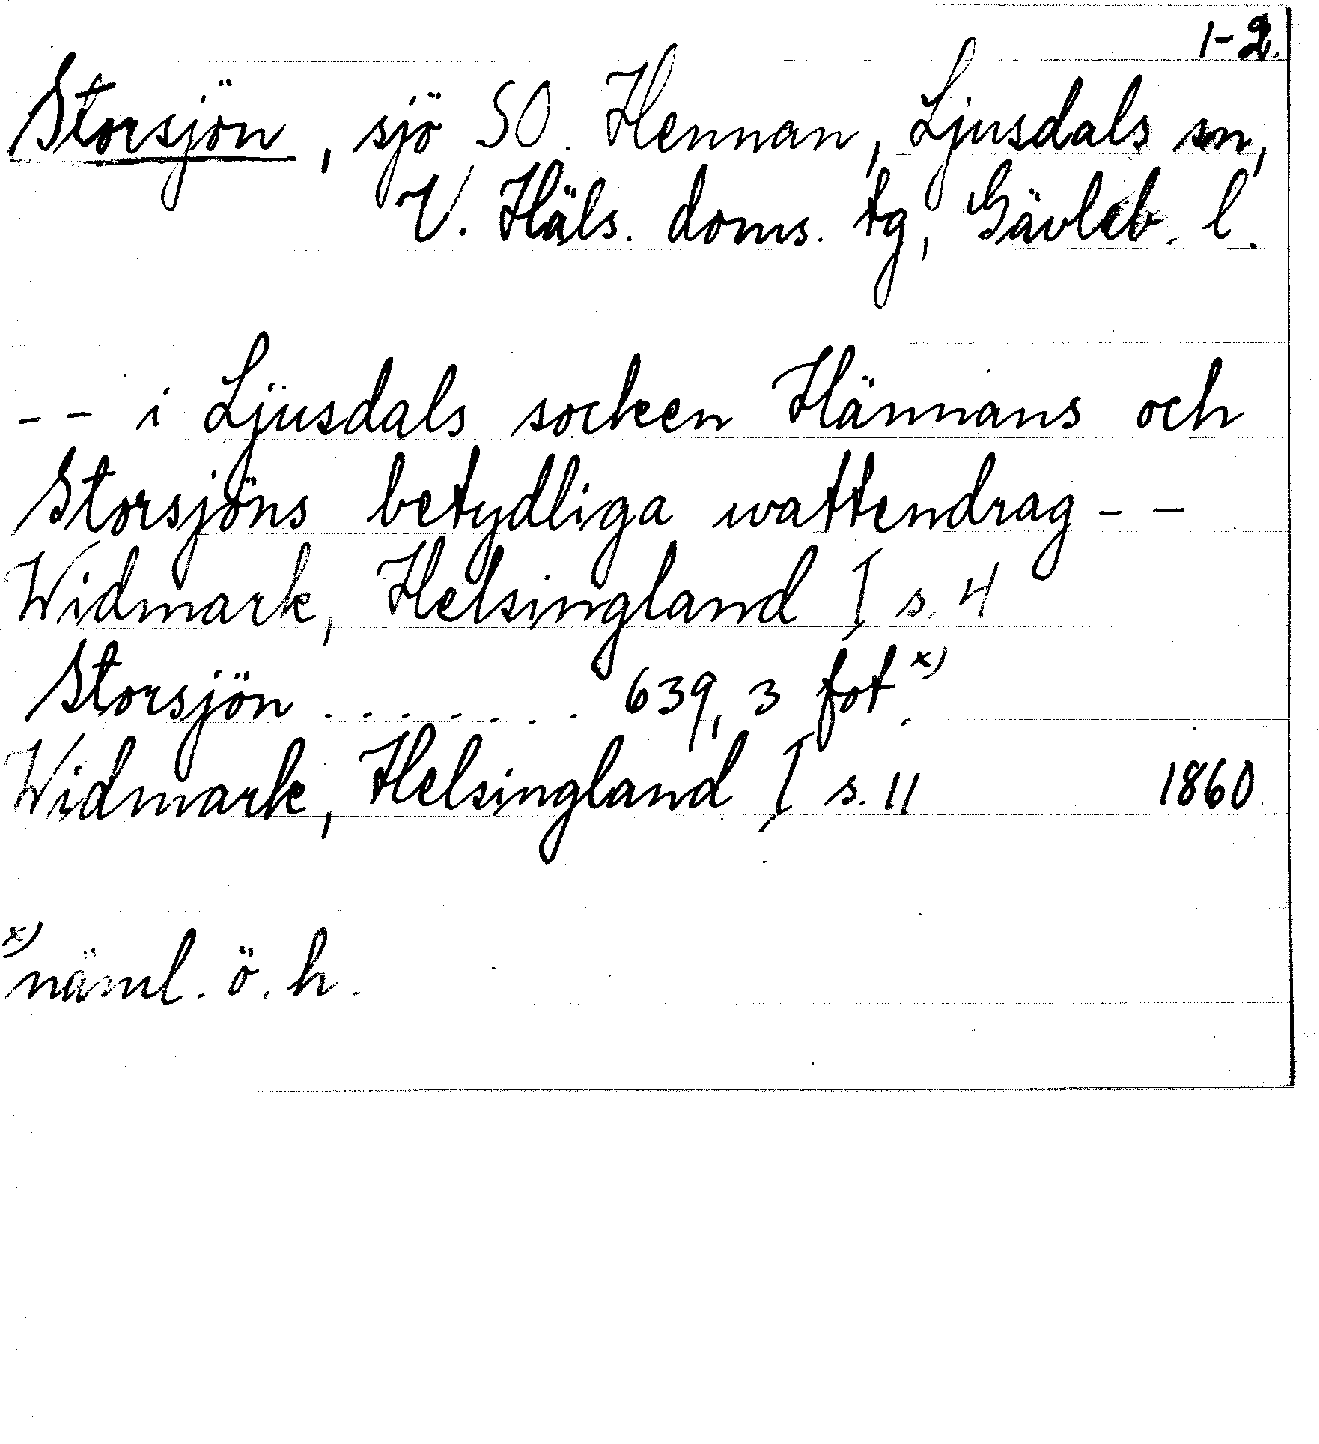 1-2.
Storsjön, sjö SO. Hennan, Ljusdals sn,
V. Häls. doms. tg, Gävleb. l.
-- i Ljusdals socken Hännans och
Storsjöns betydliga wattendrag --
Widmark, Helsingland I s. 4
Storsjön ........ 639,3 fot.x)
Widmark, Helsingland I s. 11 1860
x) näml. ö. h.